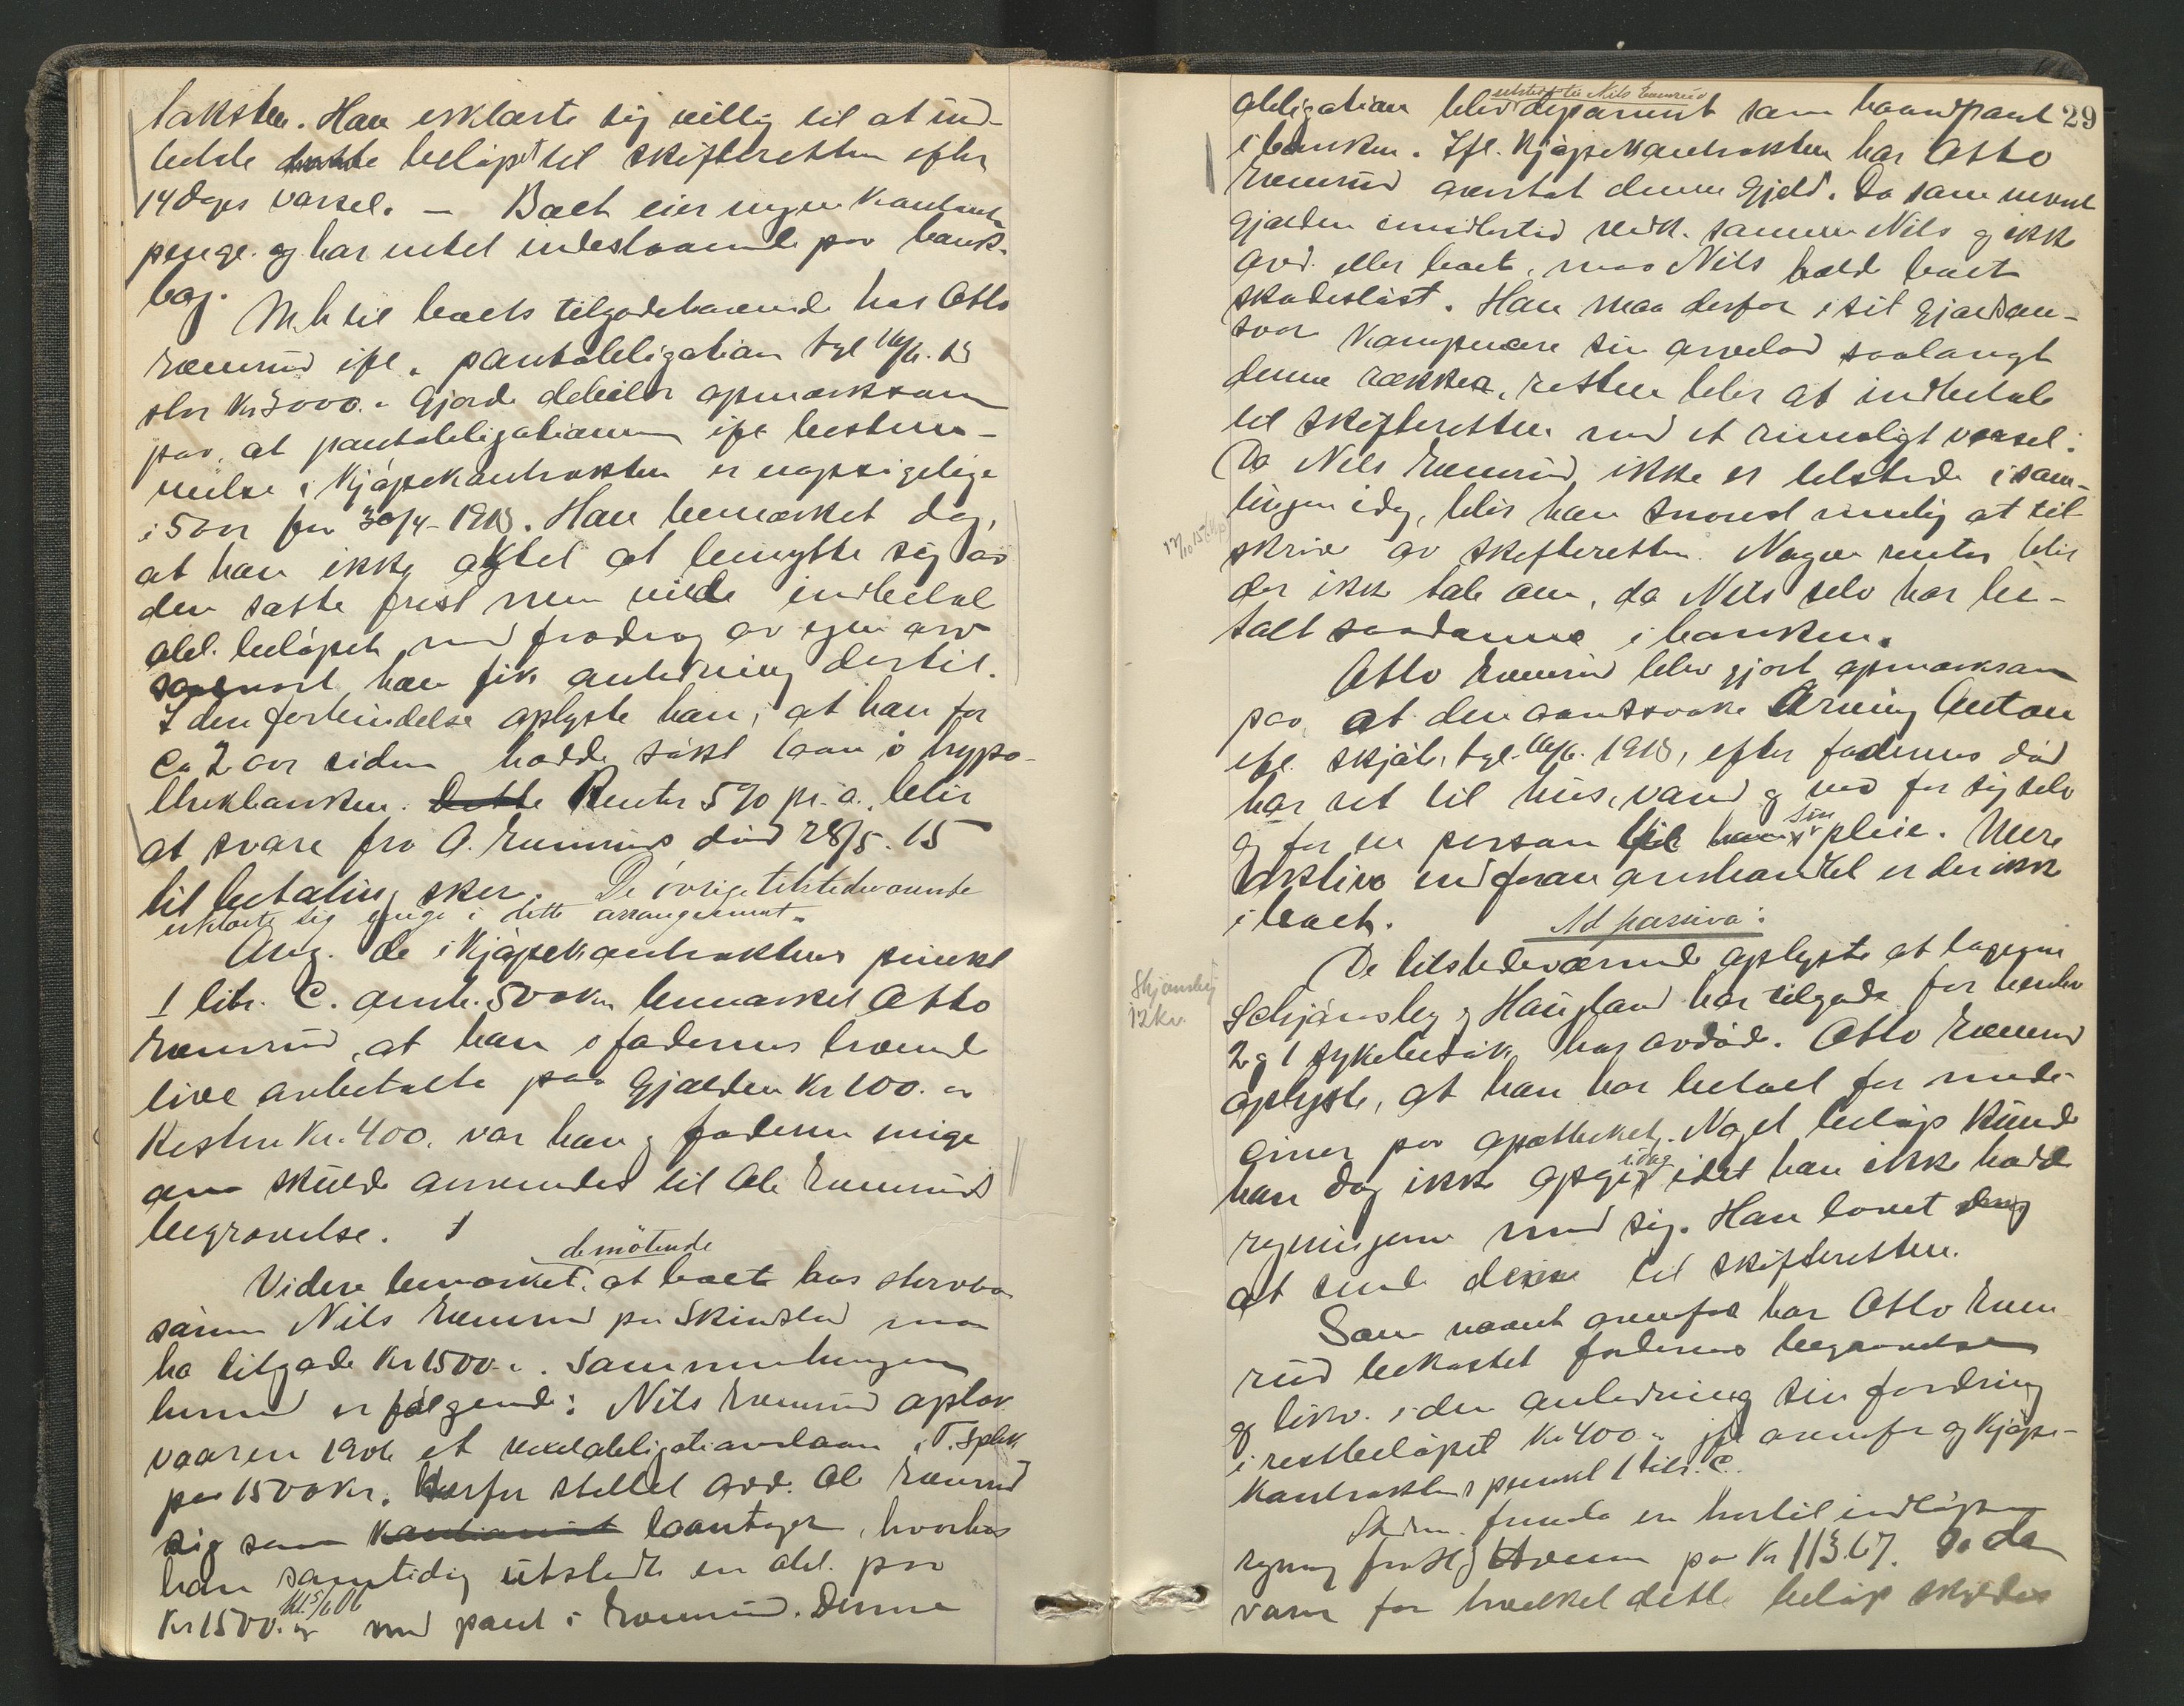 taksten. Han erklærte sig villig til at ind-
betale beløpet til skifteretten efter
14 dages varsel. — Boet eier ingen kontante
penge og har intet indestaaende paa bank-
bog.
M. h. til boets tilgodehavende hos Otto
Ræmrud ifl. pantobligation tgl 16/6. 13
stor Kr 3000.- gjorde debitor opmerksom
paa, at pantobligationen ifl bestem-
melse i Kjøpekontrakten er uopsigelige
i 5 aar fra 30/4-1913. Han bemerket dog,
at han ikke agtet at benytte sig av
den satte frist men vilde indbetale
obl. beløpet med fradrag av egen arv
saasnart han fik anledning dertil.
I den forbindelse oplyste han, at han for
ca 2 aar siden hadde søkt laan i hypo-
thekbanken. Dette Renter 5% pr. a. blir
at svare fra O. Ræmruds død 28/5. 15
til betaling sker. De øvrige tilstedeværende
erklærte sig enige i dette arrangement.
Ang. de i Kjøpekontraktens punkt
1 litr. C. omh. 500 Kr bemerket Otto
Ræmrud, at han i faderens levende
live avbetalte paa gjælden Kr 100.-
Resten Kr. 400. var han og faderen enige
om skulde anvendes til Ole Ræmruds
begravelse.
de møtende
Videre bemerket at boet hos stervbo
sønnen Nils Ræmrud paa Skinstad maa
ha tilgode Kr 1500.-. Sammenhengen
hermed er følgende: Nils Ræmrud optok
vaaren 1906 et vexelobligationslaan i T. Spbk.
paa 1500 Kr. Herfor stillet avd. Ole Ræmrud
sig som kautionist laantager, hvorhos
han samtidig utstedte en obl. paa
Kr 1500.- med pant i Ræmrud. Denne
utstedt til Nils Ræmrud
29
obligation blev deponert som haandpant
i banken. Ifl. Kjøpekontrakten har Otto
Ræmrud overtat denne gjeld. Da som nevnt
gjælden imidlertid vedk. sønnen Nils og ikke
avd. eller boet, maa Nils holde boet
skadesløst. Han maa derfor i sit gjældsan-
svar kompensere sin arvelod saalangt
denne rækker, resten blir at indbetale
til skifteretten med et rimeligt varsel.
Da Nils Ræmrud ikke er tilstede i sam-
lingen idag, blir han snarest mulig at til-
skrive av skifteretten. Nogen renter blir
der ikke tale om, da Nils selv har be-
talt saadanne i banken.
Otto Ræmrud blev gjort opmerksom
paa, at den aandssvake Arving Anton
ifl. skjøte, tgl. 16/6. 1913, efter faderens død
har ret til hus, vand og ved for sig selv
sin
og for en person til pleie. Mere
Aktiva end foran omhandlet er der ikke
i boet.
Ad passiva:
De tilstedeværende oplyste at lægerne
Skjønsby
12 kr.
Schjønsby og Haugland har tilgode for henhv
2 og 1 sykebesøk hos avdøde. Otto Ræmrud
oplyste, at han har betalt for medi-
ciner paa apotheket. Noget beløp kunde
idag
han dog ikke opgi idet han ikke hadde
regningerne med sig. Han lovet dog
at sende disse til skifteretten.
Som nævnt ovenfor har Otto Ræm-
rud bekostet faderens begravelse
og likv. i den anledning sin fordring
i restbeløpet Kr 400.- ifl ovenfor og Kjøpe-
kontraktens punkt 1 litr. C.
regning fra paa Kr 113.67. De
varer for hvilket dette beløp skyldes